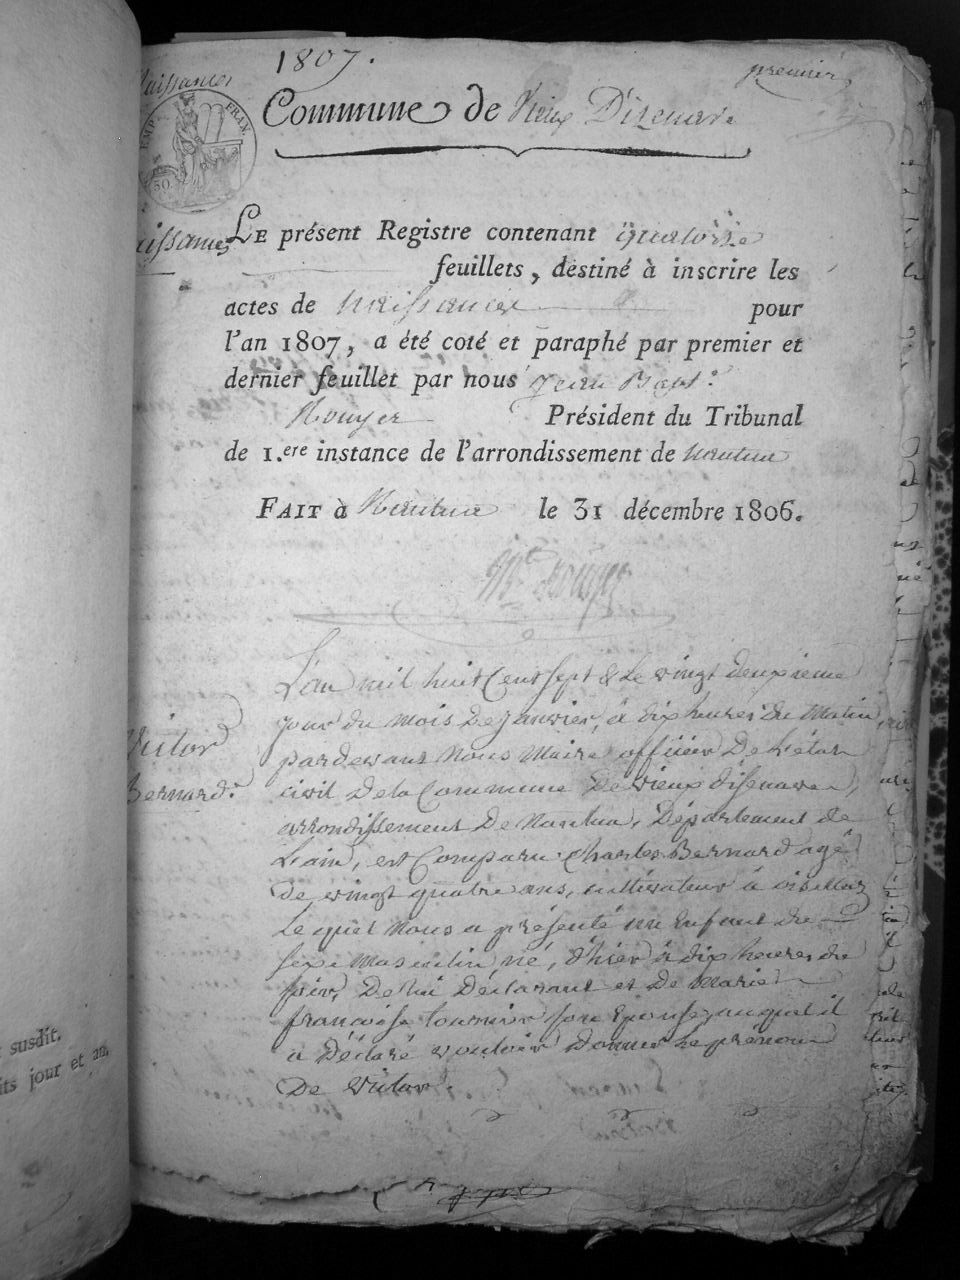 1807.
premier
Naissances
Commune de Vieux D'izenave
EMP. FRAN.
50.
Naissances
LE présent Registre contenant quatorze
feuillets, destiné à inscrire les
actes de Naissances pour
l'an 1807, a été coté et paraphé par premier et
dernier feuillet par nous Jean Bapt.e
Rouyer Président du Tribunal
de 1.ere instance de l'arrondissement de Nantua
FAIT à Nantua le 31 décembre 1806.
Victor
Bernard.
L'an mil huit Cent sept & Le vingt deuxieme
jour du mois De janvier, à dix heures du Matin
pardevant Nous Maire, officier De L'état
civil De la Commune De vieux d'isenave,
arrondissement De Nantua, Département de
L'ain, est Comparu Charles Bernard agé
De vingt quatre ans, cultivateur à
Le quel Nous a présenté un Enfant du
sexe masculin né, d'hier à dix heures du
soir, De lui Déclarant et De Marie
françoise tournier son Epouse, auquel il
a Déclaré vouloir Donner Le prénom
De victor.
susdit.
jour et an,